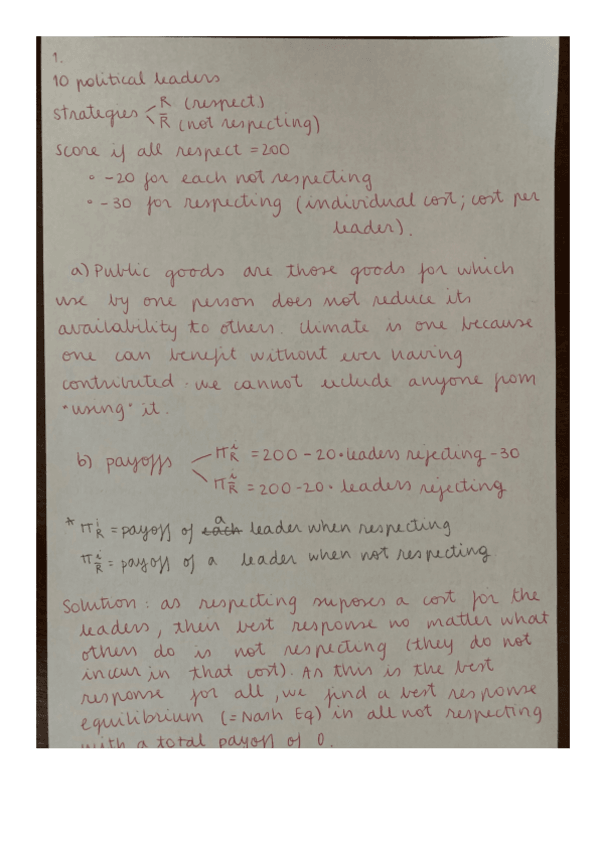 1.
10 political leaders
strategies R (respect)
R̄ (not respecting)
score if all respect = 200
◦ -20 for each not respecting
◦ -30 for respecting (individual cost; cost per
leader).
a) Public goods are those goods for which
use by one person does not reduce its
availability to others. Climate is one because
one can benefit without ever having
contributed. we cannot exclude anyone from
"using" it.
b) payoffs πⁱR = 200 - 20 · leaders rejecting - 30
πⁱR̄ = 200 - 20 · leaders rejecting
* πⁱR = payoff of each a leader when respecting
πⁱR̄ = payoff of a leader when not respecting
Solution: as respecting suposes a cost for the
leaders, their best response no matter what
others do is not respecting (they do not
incurr in that cost). As this is the best
response for all, we find a best response
equilibrium (= Nash Eq) in all not respecting
with a total payoff of 0.